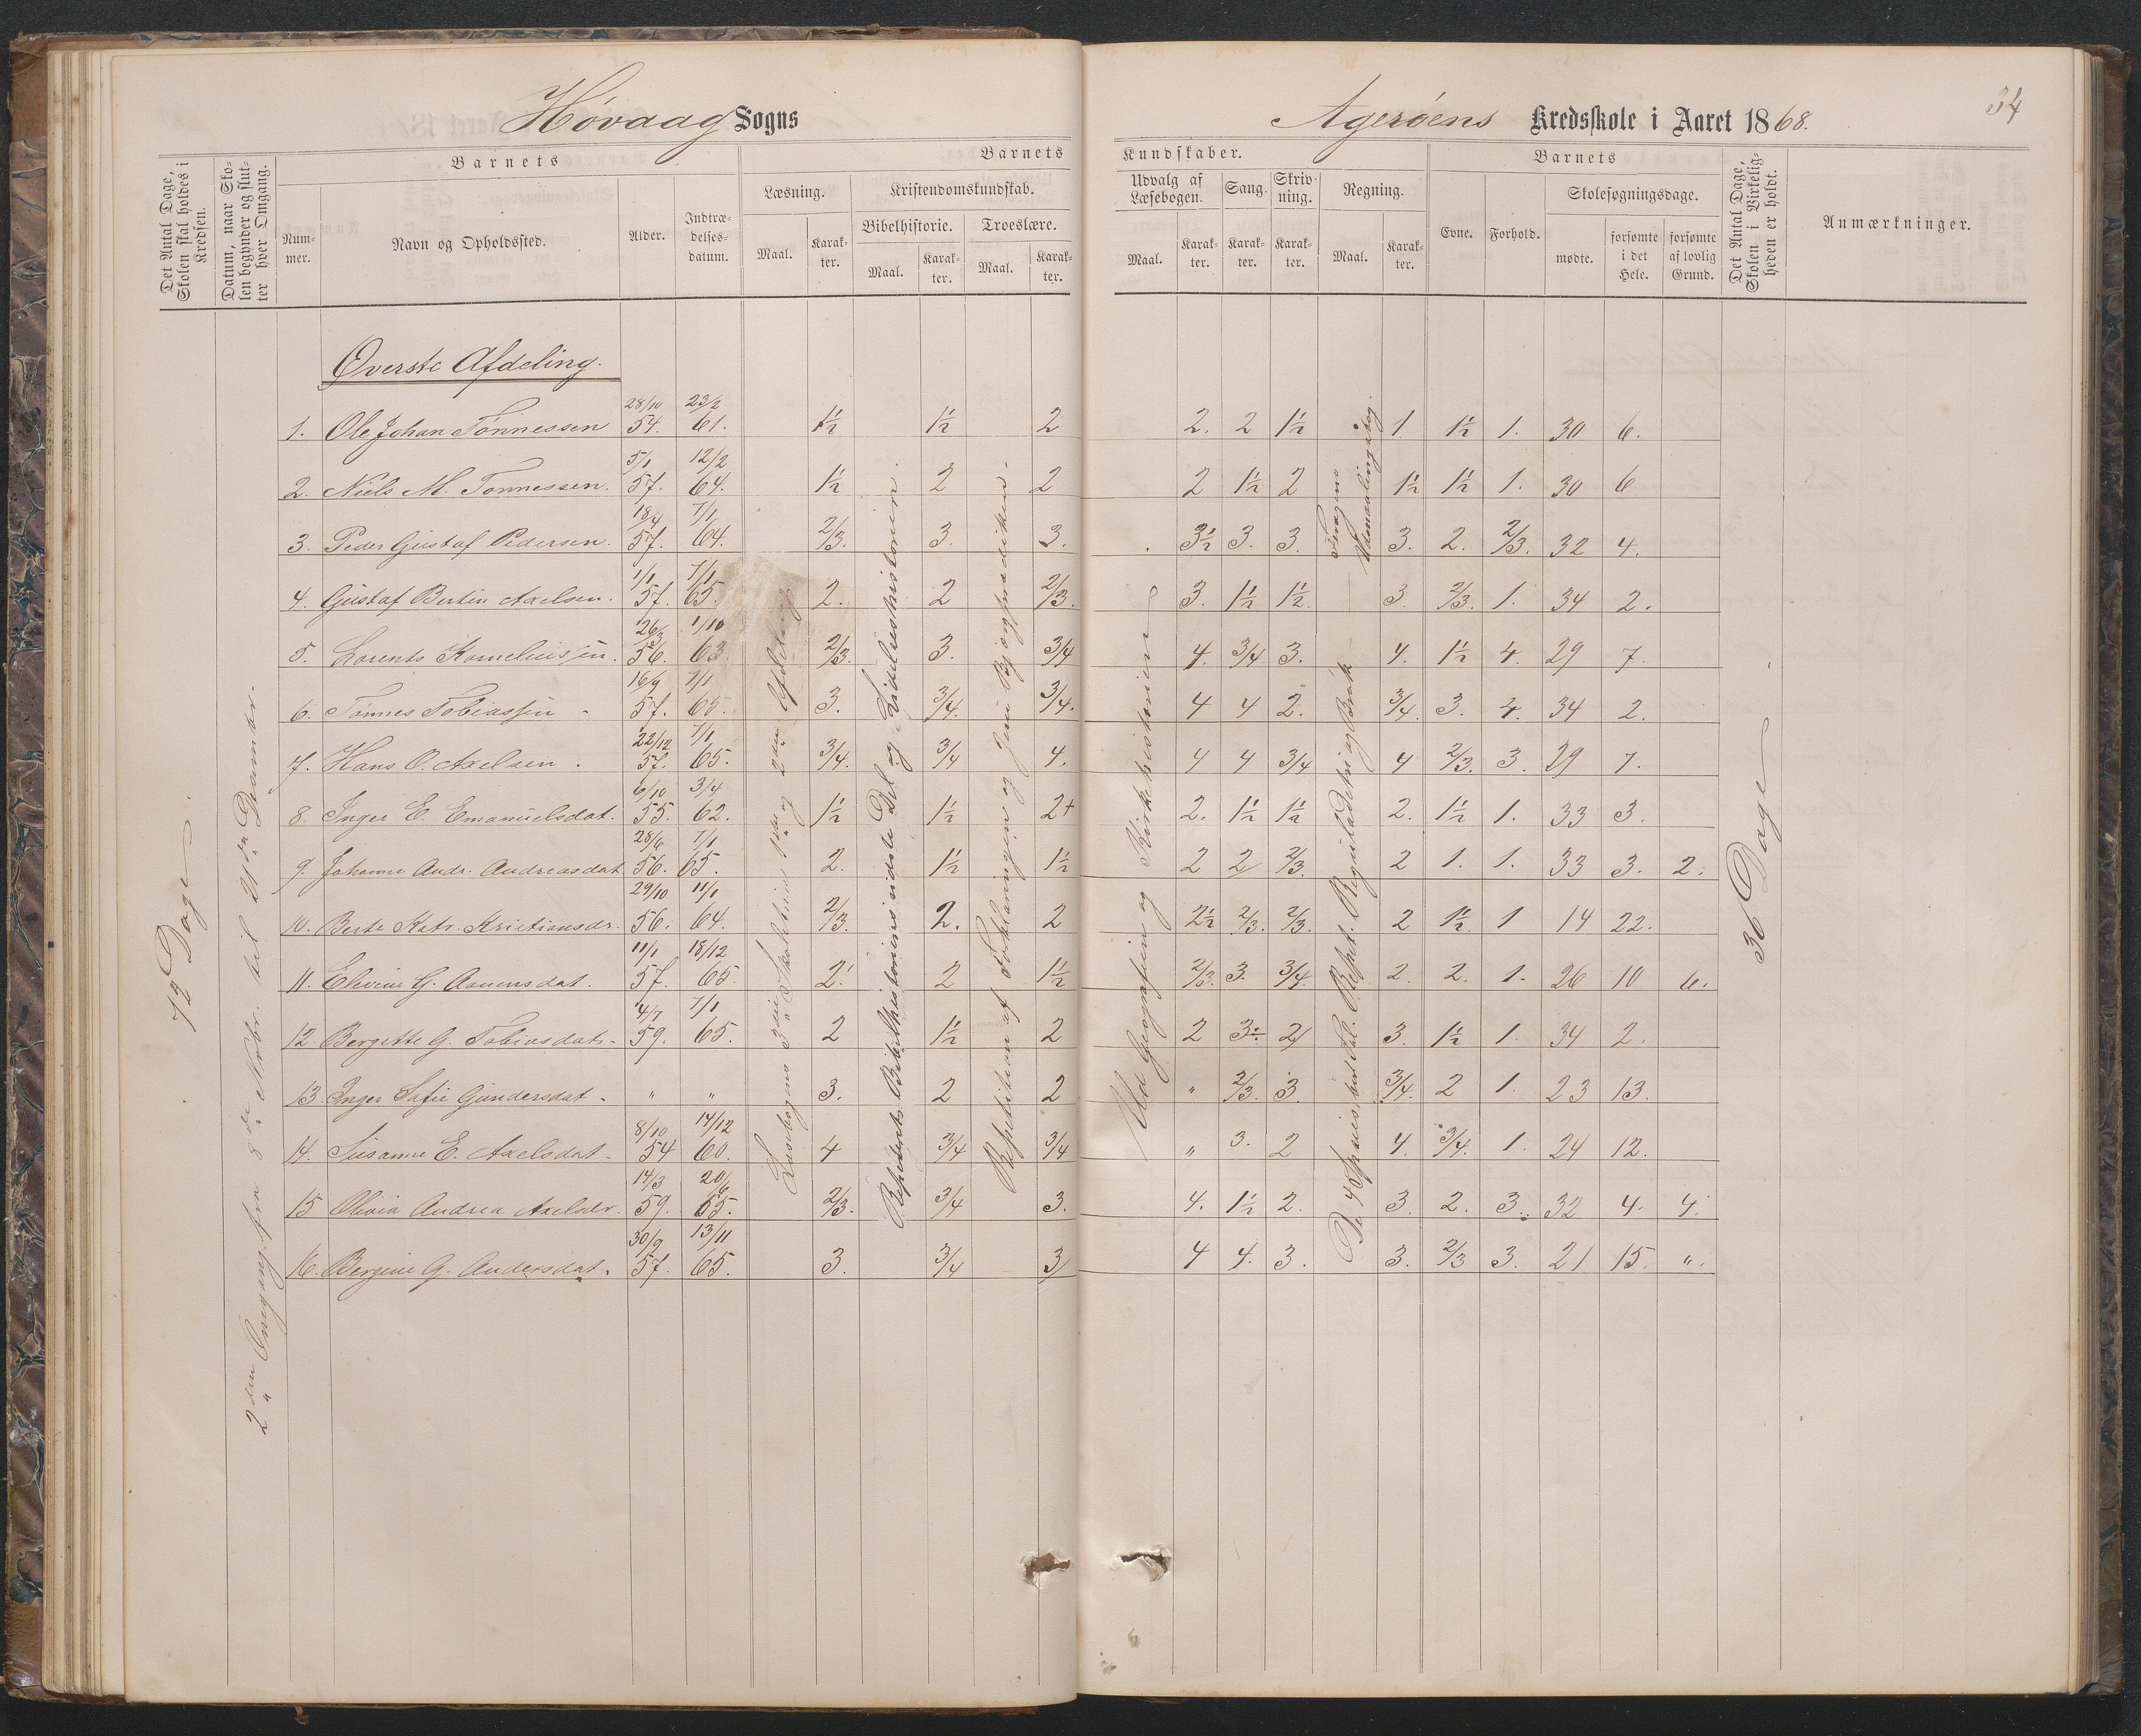 Høvaag Sogns
Agerøens Kredsskole i Aaret 1868.
34
Det Antal Dage, Skolen skal holdes i Kredsen.
Datum, naar Skolen begynder og slutter hver Omgang.
Barnets
Barnets
Kundskaber.
Barnets
Det Antal Dage, Skolen i Virkeligheden er holdt.
Anmærkninger.
Nummer.
Navn og Opholdssted.
Alder.
Indtrædelsesdatum.
Læsning.
Kristendomskundskab.
Bibelhistorie.
Troeslære.
Udvalg af Læsebogen.
Sang.
Skrivning.
Regning.
Evne.
Forhold.
Skolesøgningsdage.
Maal.
Karakter.
Maal.
Karakter.
Maal.
Karakter.
Maal.
Karakter.
Karakter.
Karakter.
Maal.
Karakter.
mødte.
forsømte i det Hele.
forsømte af lovlig Grund.
72 Dage.
2den Omgang fra 8de Novbr. til 21de Decembr.
Øverste Afdeling.
Læsebogens 3die Skoletrin 1ste og 2den Afdeling
Repeteret Bibelhistoriens sidste Del og Lidelseshistorien.
Repetition af Forklaringen og Jesu Bjergprædiken.
Ud Geografien og Kirkehistorien
De 4 Spesies, ben. Tal. Repet. Reguladetri og Brøk
36 Dage
1. Ole Johan Tønnessen 28/10 54. 23/2 61. 1½ 1½ 2 2. 2 1½ 1 1½ 1. 30 6.
2. Niels M. Tønnessen. 5/1 57. 12/2 64. 1½ 2 2 2 1½ 2 1½ 1½ 1. 30 6
3. Peder Gustaf Pedersen. 18/4 57. 7/1 64. 2/3. 3. 3. 3½ 3. 3. 3. 2. 2/3. 32 4.
4. Gustaf Bertin Axelsen. 1/1 57. 7/1 65. 2. 2 2/3. 3. 1½ 1½ 3. 2/3. 1. 34 2.
5. Lorents Korneliussen. 26/3 56. 1/10 63. 2/3. 3. 3/4 4. 3/4 3. 4. 1½ 4. 29 7.
6. Tønnes Tobiassen 16/9 57. 7/1 65. 3. 3/4. 3/4. 4 4 2. 3/4. 3. 4. 34 2.
7. Hans O. Axelsen. 22/12 57. 7/1 65. 3/4. 3/4 4. 4 4 3/4 4 2/3. 3. 29 7.
8. Inger E. Emanuelsdat. 6/10 55. 3/4 62. 1½ 1½ 2+ 2. 1½ 1½ 2. 1½ 1. 33 3.
9. Johanne Andr. Andreasdat. 28/6 56. 7/1 65. 2. 1½ 1½ 2 2 2/3. 2 1. 1. 33 3. 2.
10. Berte Katr. Kristiansdr. 29/10 56. 11/1 64. 2/3. 2. 2 2½ 2/3. 2/3. 2 1½ 1 14 22.
11. Elevine G. Aanensdat. 11/1 57. 18/12 65. 2. 2 1½ 2/3. 3. 3/4. 2. 2. 1. 26 10 6.
12. Bergitte G. Tobiasdatr. 4/7 59. 7/1 65. 2 1½ 2 2 3÷ 2 3. 1½ 1. 34 2.
13 Inger Sofie Gundersdat. " " 3. 2 2 " 2/3. 3. 3/4. 2 1. 23 13.
14. Susanne E. Axelsdat. 8/10 54 14/12 60. 4 3/4 3/4 " 3. 2 4. 3/4. 1. 24 12.
15 Olivia Andrea Axelsdr. 14/3 59. 20/6 65. 2/3. 3/4 3. 4. 1½ 2. 3. 2. 3. 32 4. 4.
16. Bergine G. Andersdat. 30/9 57. 13/11 65. 3. 3/4 3 4 4. 3. 3. 2/3 3. 21 15. ".